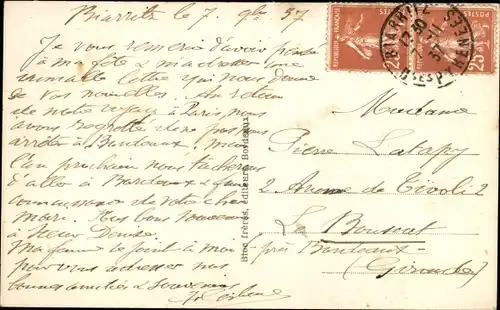 Biarritz le 7. 9bre 37
Je vous remercie d'avoir pensé
à ma fête & m'adresser une
aimable lettre qui nous donne
de vos nouvelles. Au retour
de notre séjour à Paris, nous
avons regretté de ne pas nous
arrêter à Bordeaux. Mais
l'an prochain nous tâcherons
d'aller à Bordeaux & faire
connaissance de votre cher
mari. Mes bons souvenirs
à Denise.
Ma femme se joint à moi
pour vous adresser nos
bonnes amitiés & souvenirs
Bloc frères, éditeurs Bordeaux
REPUBLIQUE FRANÇAISE
25
REPUBLIQUE FRANÇAISE
25
BIARRITZ
Madame
Pierre Latapy
2 Avenue de Tivoli 2
Le Bouscat
près Bordeaux
(Gironde)